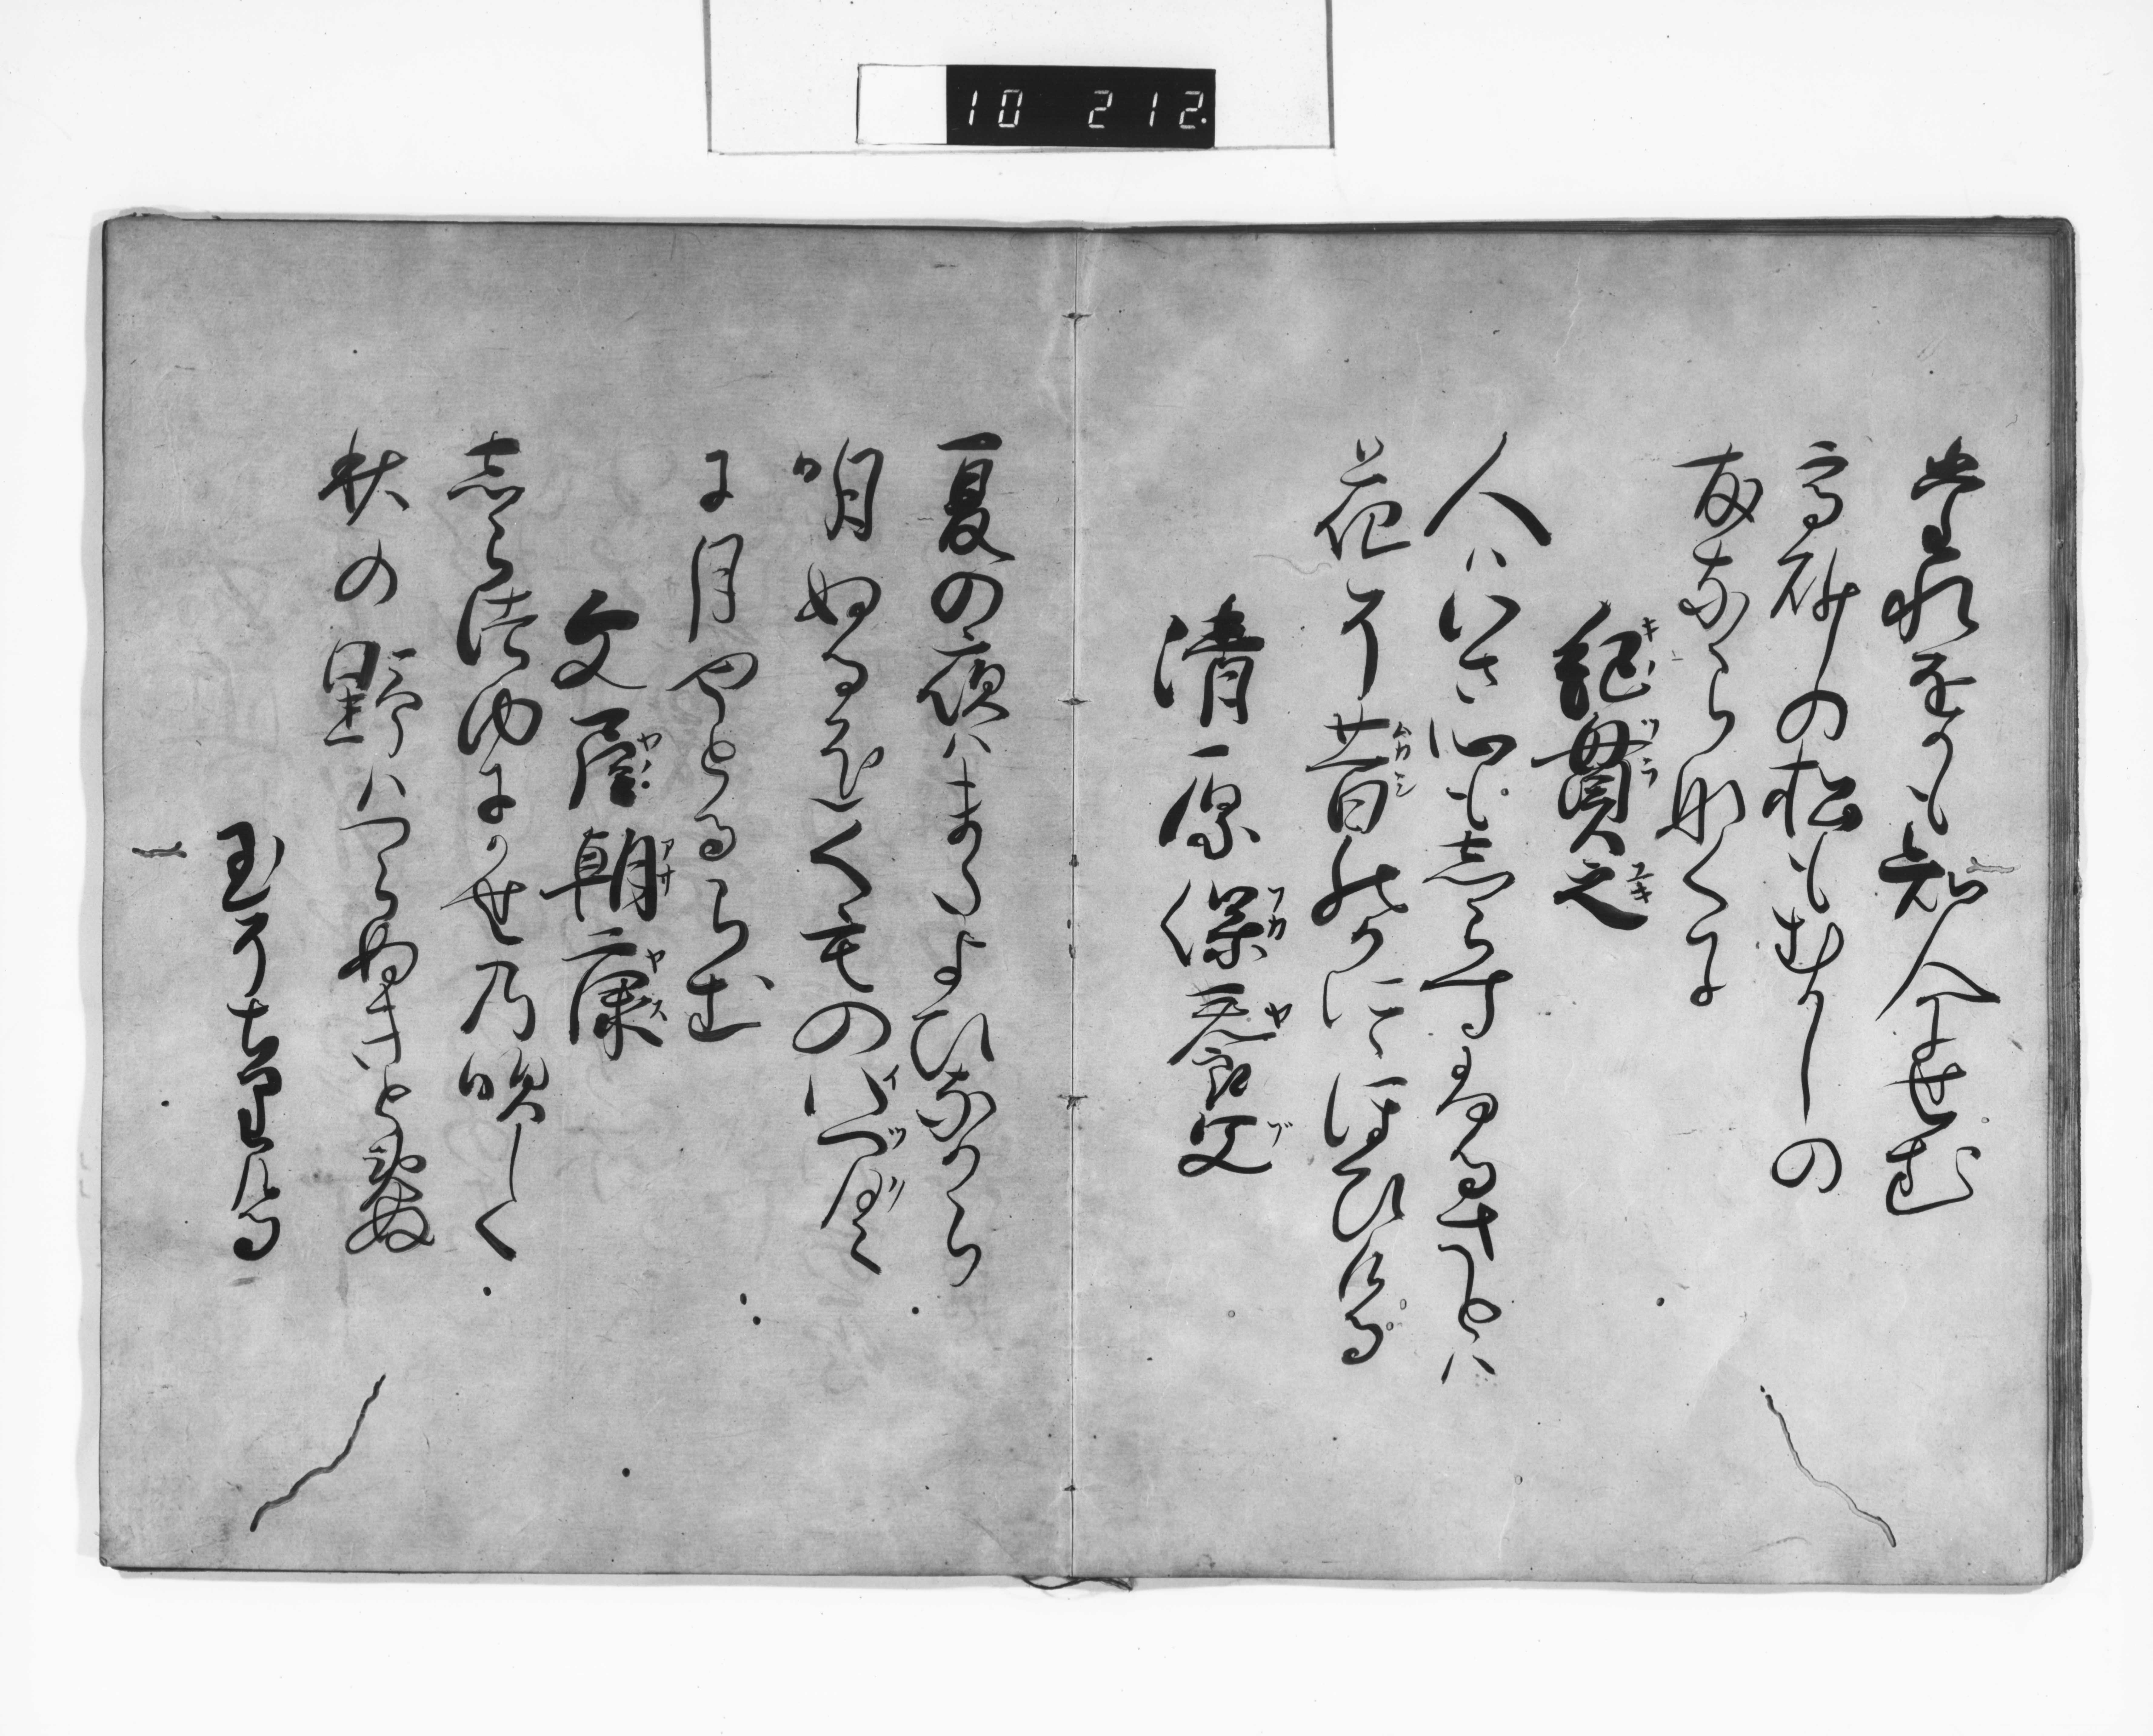 10 212.
たれをかも知人にせむ
高砂の松もむかしの
友ならなくに
紀貫之
人はいさ心もしらすふるさとは
花そ昔のかににほひける
清原深養父
夏の夜はまたよひなから
明ぬるをくものいづく
に月やとるらむ
文屋朝康
しらつゆにかせの吹しく
秋の野はつらぬきとめぬ
玉そちりける